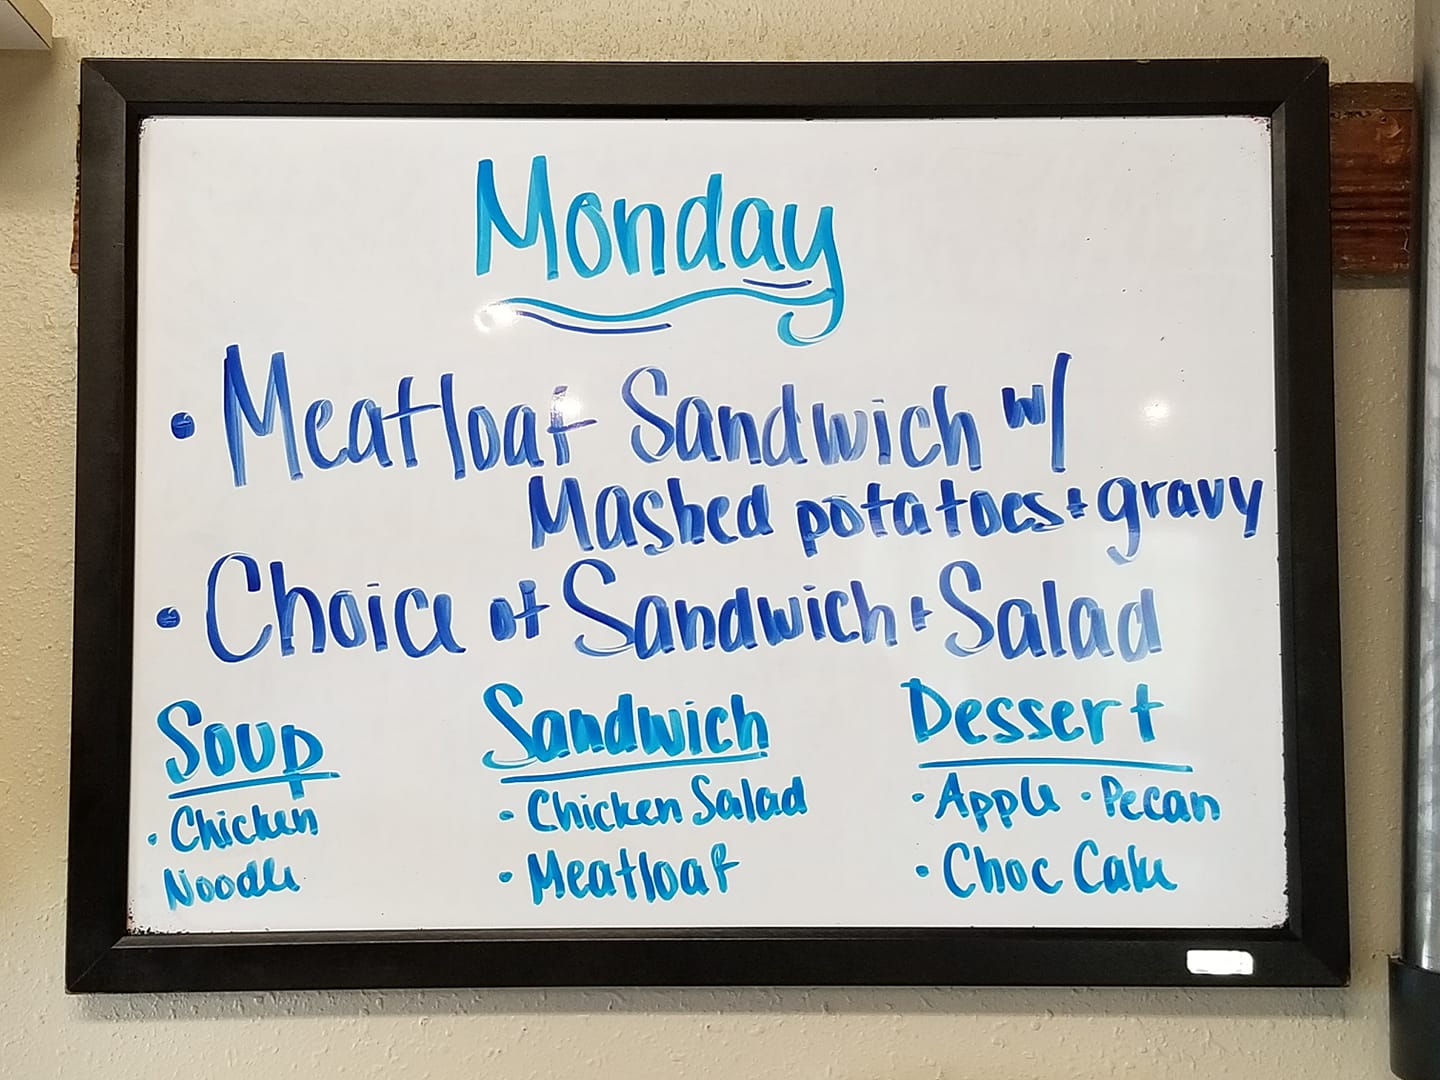 Monday
• Meatloaf Sandwich w/
Mashed potatoes + gravy
• Choice of Sandwich + Salad
Soup
• Chicken
Noodle
Sandwich
• Chicken Salad
• Meatloaf
Dessert
• Apple • Pecan
• Choc Cake